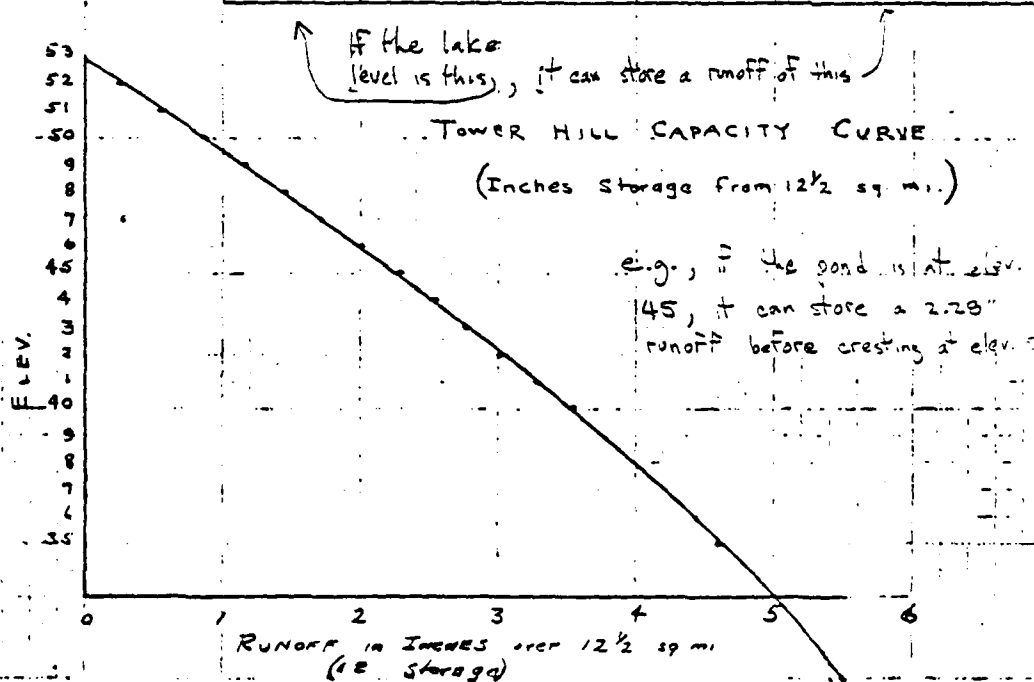 If the lake
level is this, it can store a runoff of this
TOWER HILL CAPACITY CURVE
(Inches Storage from 12½ sq. mi.)
e.g., if the pond is at elev.
145, it can store a 2.28"
runoff before cresting at elev.
ELEV.
53
52
51
50
9
8
7
6
45
4
3
2
1
40
9
8
7
6
35
0 1 2 3 4 5 6
RUNOFF in INCHES over 12½ sq mi
(IE Storage)